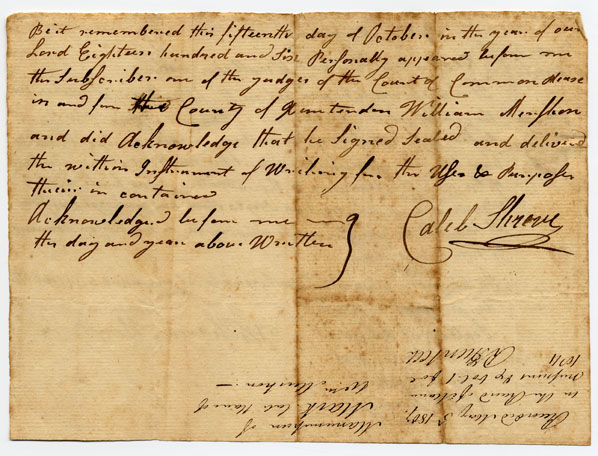 Be it remembered this fifteenth day of October in the year of our
Lord Eighteen hundred and Six Personally appeared before me
the Subscriber one of the judges of the Court of Common Please
in and for the County of Hunterdon William Mershon
and did Acknowledge that he Signed Sealed and delivered
the within Instrument of Writing for the Uses & Purposes
therein contained
Acknowledged before me
the day and year above Written
Caleb Shreve
Manumission of
Mark late Slave of
Wm Mershon. —
Recorded May 5 1807.
in the
by Vol. 1 for